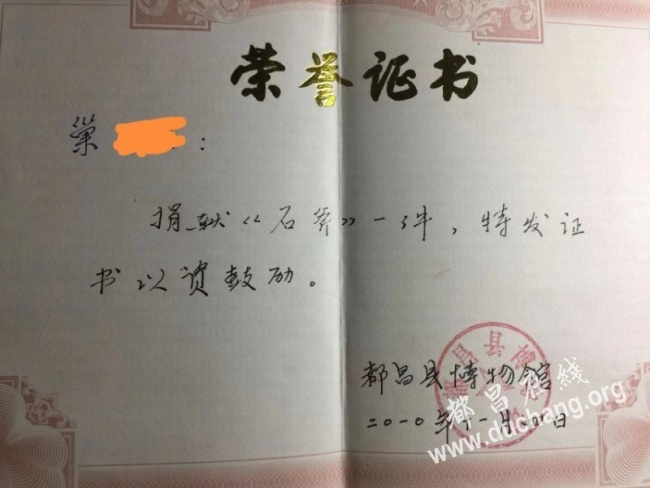 荣誉证书
巢 :
捐献《石斧》一件，特发证
书以资鼓励。
都昌县博物馆
二〇一〇年十一月 日
都昌在线
www.duchang.org